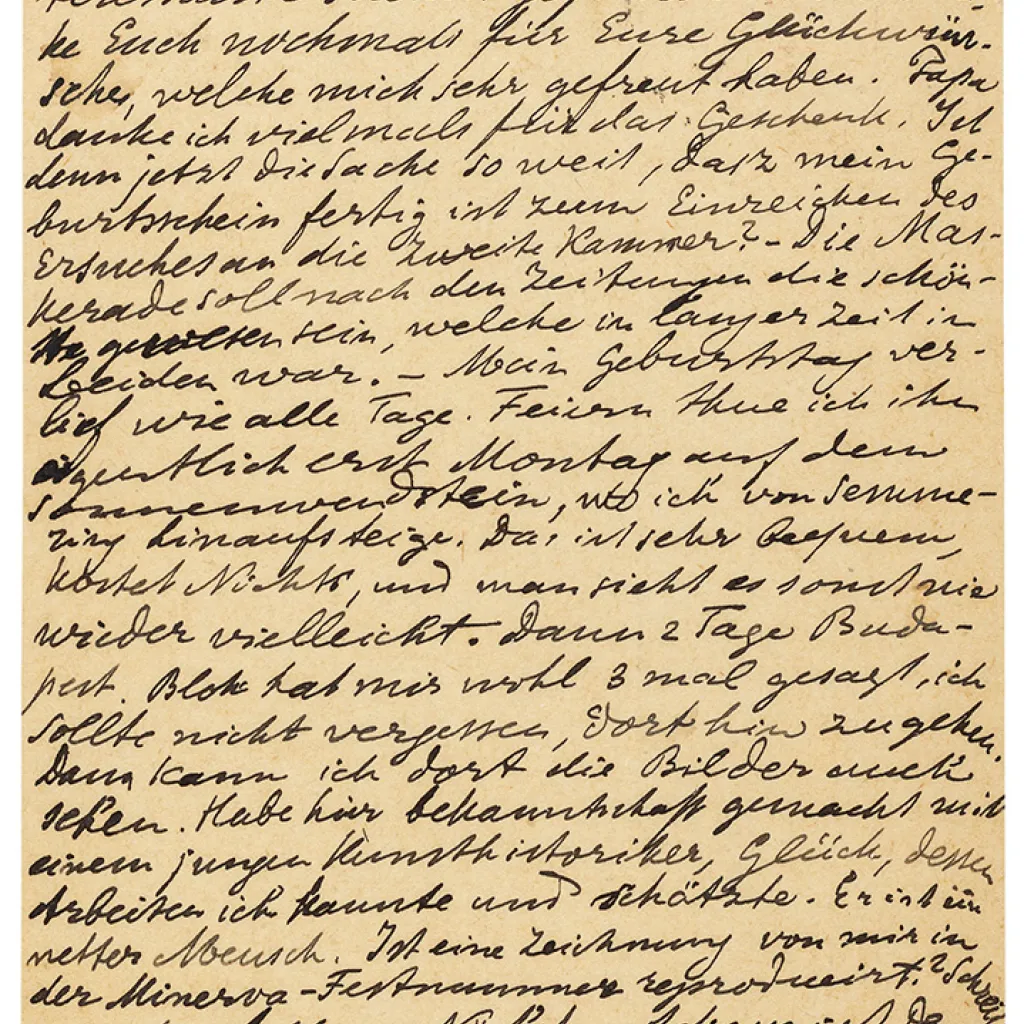 ke Euch nochmals für Eure Glückwün-
sche, welche mich sehr gefreut haben. Papa
danke ich vielmals für das Geschenk. Ist
denn jetzt die Sache so weit, dasz mein Ge-
burtsschein fertig ist zum Einreichen des
Ersuches an die Zweite Kammer? - Die Mas-
kerade soll nach den Zeitungen die schön-
ste gewesen sein, welche in langer Zeit in
Leiden war. - Mein Geburtstag ver-
lief wie alle Tage. Feiern thue ich ihn
eigentlich erst Montag auf dem
Sonnenwendstein, wo ich von Semme-
ring hinaufsteige. Das ist sehr bequem,
kostet Nichts, und man sieht es sonst nie
wieder vielleicht. Dann 2 Tage Buda-
pest. Blok hat mir wohl 3 mal gesagt, ich
sollte nicht vergessen, dort hin zu gehen.
Dann kann ich dort die Bilder auch
sehen. Habe hier bekanntschaft gemacht mit
einem jungen Kunsthistoriker, Glück, dessen
Arbeiten ich kannte und schätzte. Er ist ein
netter Mensch. Ist eine Zeichnung von mir in
der Minerva-Festnummer reproducirt? Schreib